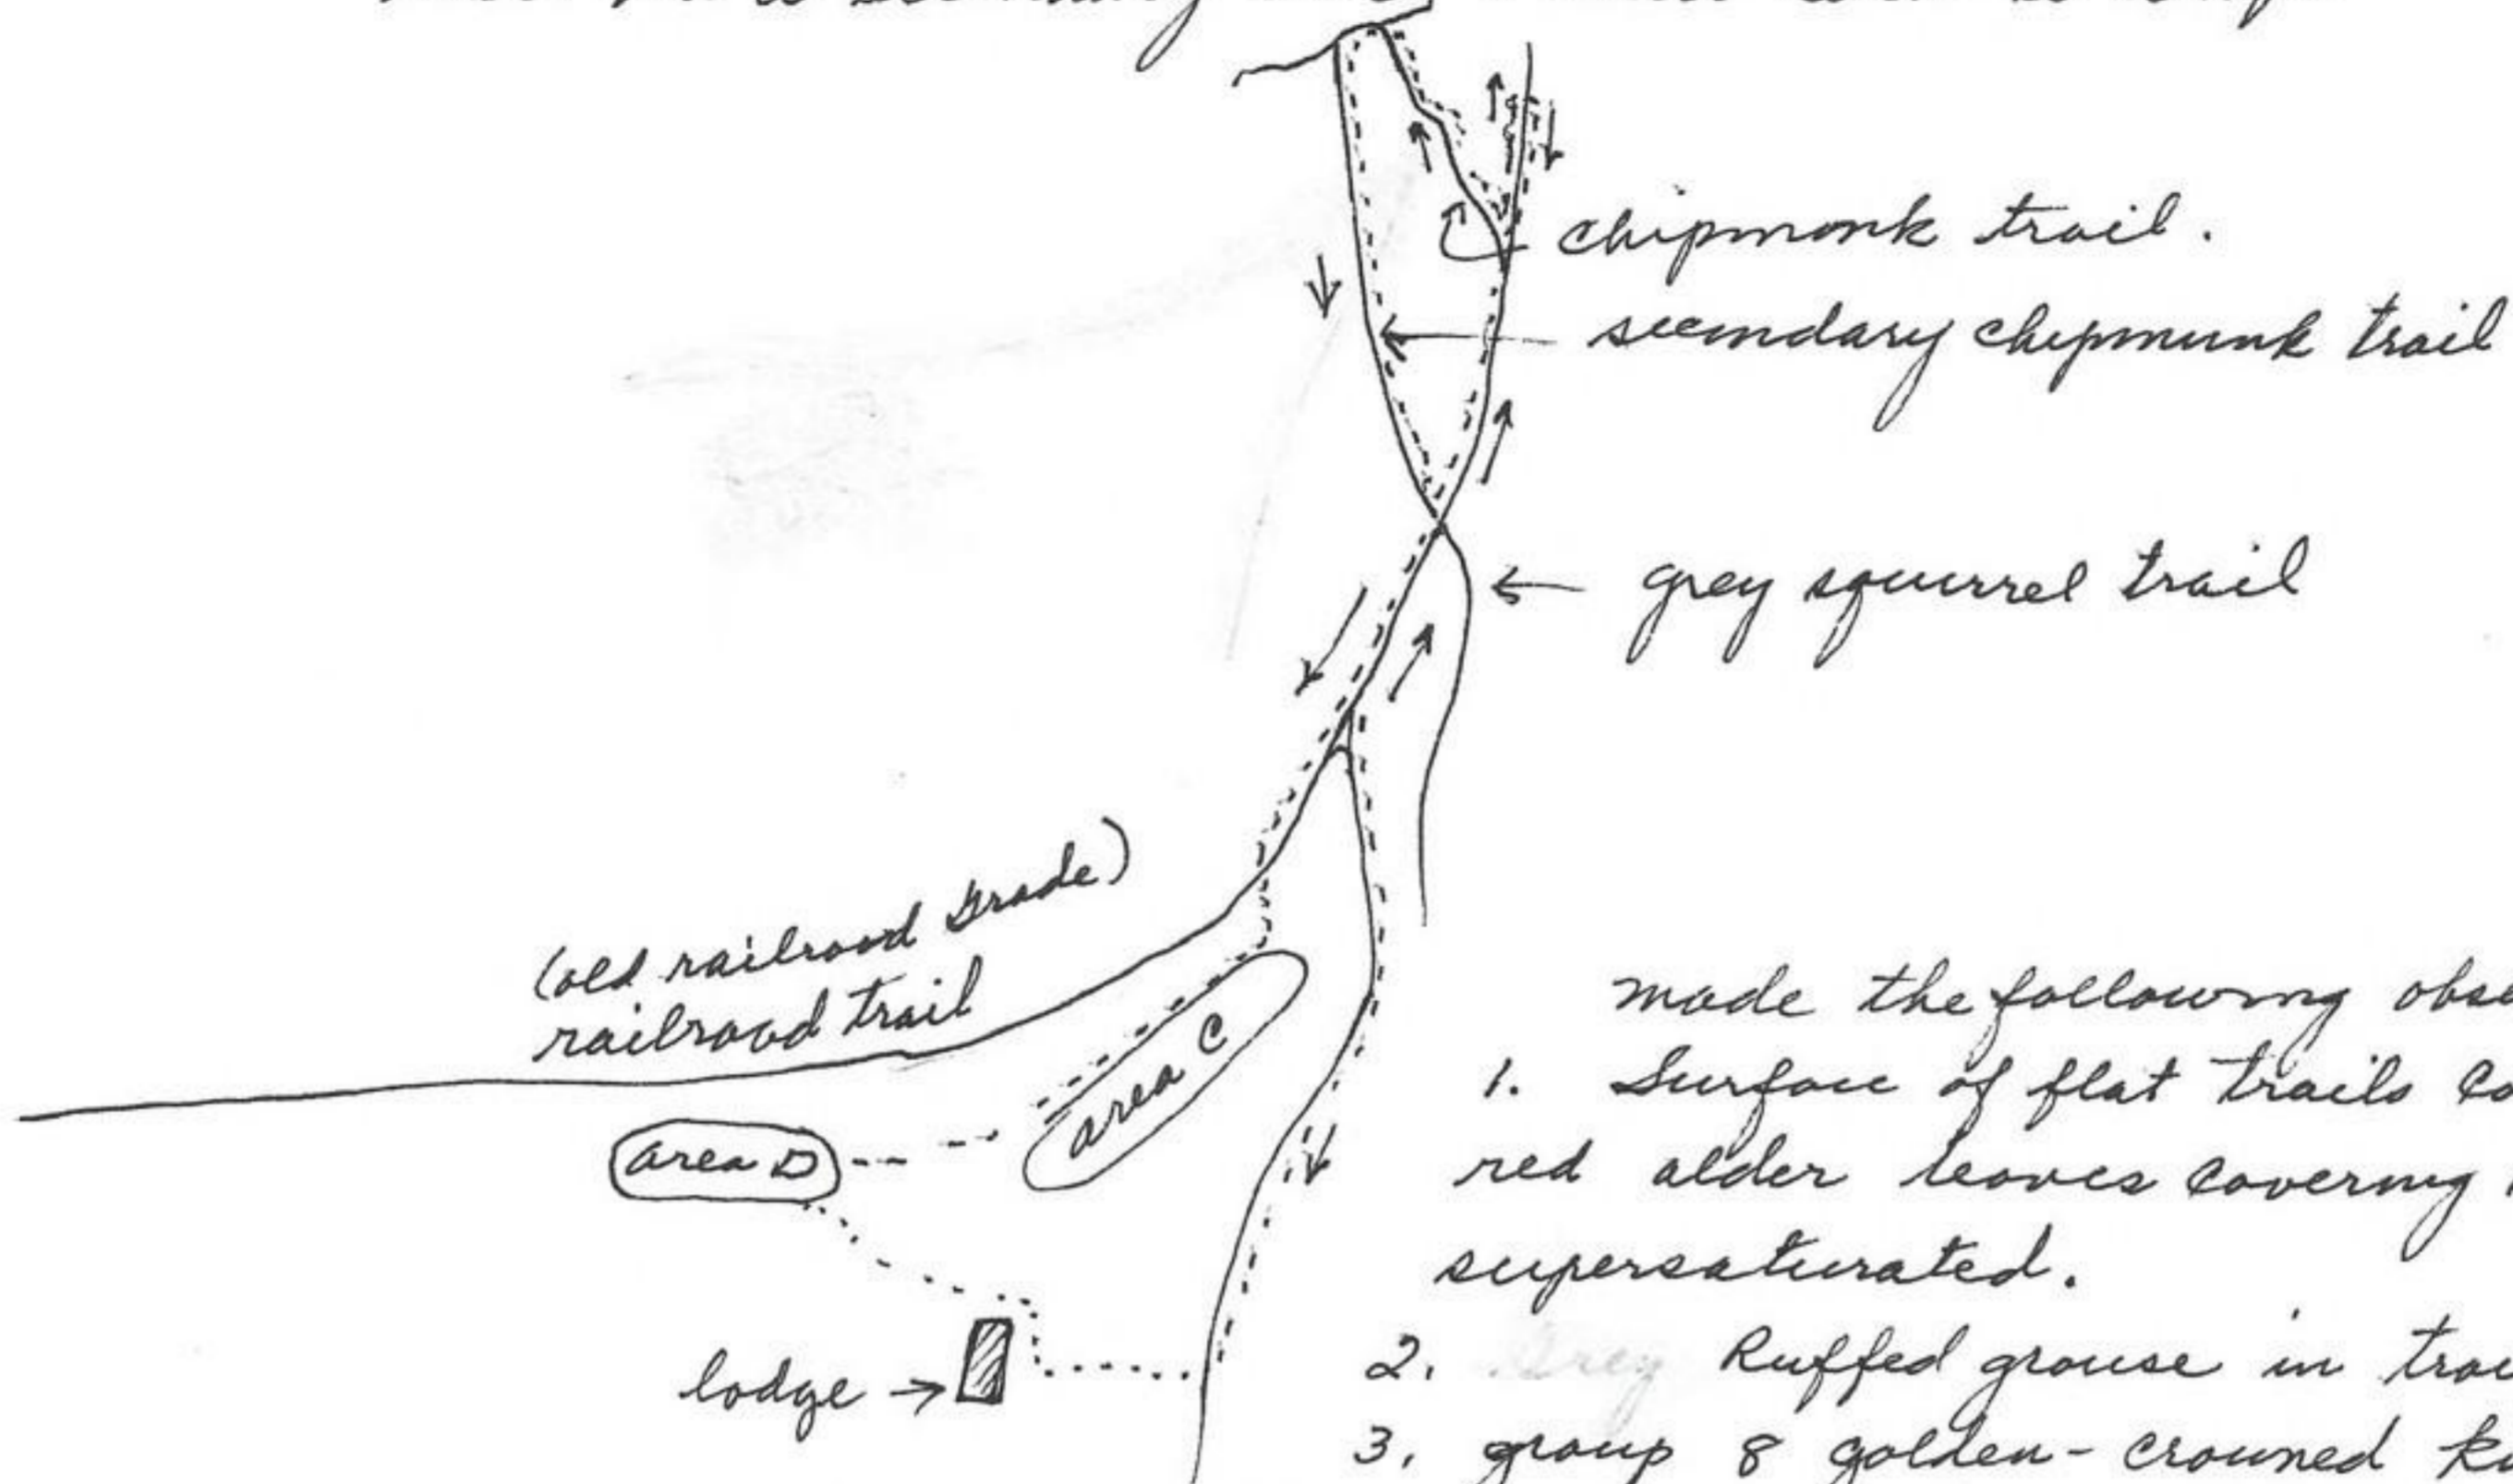 chipmonk trail.
secondary chipmunk trail
grey squirrel trail
(old railroad grade)
railroad trail
made the following obse
area C
1. Surface of flat trails co
area D
red alder leaves covering
supersaturated.
2. Grey Ruffed grouse in trai
lodge →
3. group 8 golden-crowned k